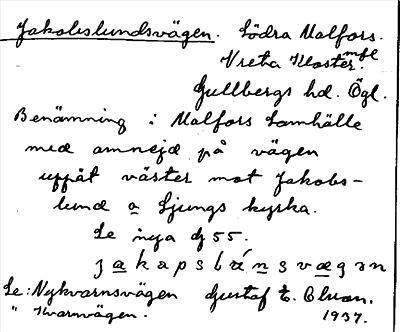 Jakobslundsvägen. Södra Malfors.
Vreta Kloster mfl.
Gullbergs hd. Ögl.
Benämning i Malfors Samhälle
med omnejd på vägen
uppåt väster mot Jakobs-
lund o Ljungs kyrka.
Se inya dj 55.
Se: Nykvarnsvägen Gustaf E.
" Kvarnvägen. 1937.